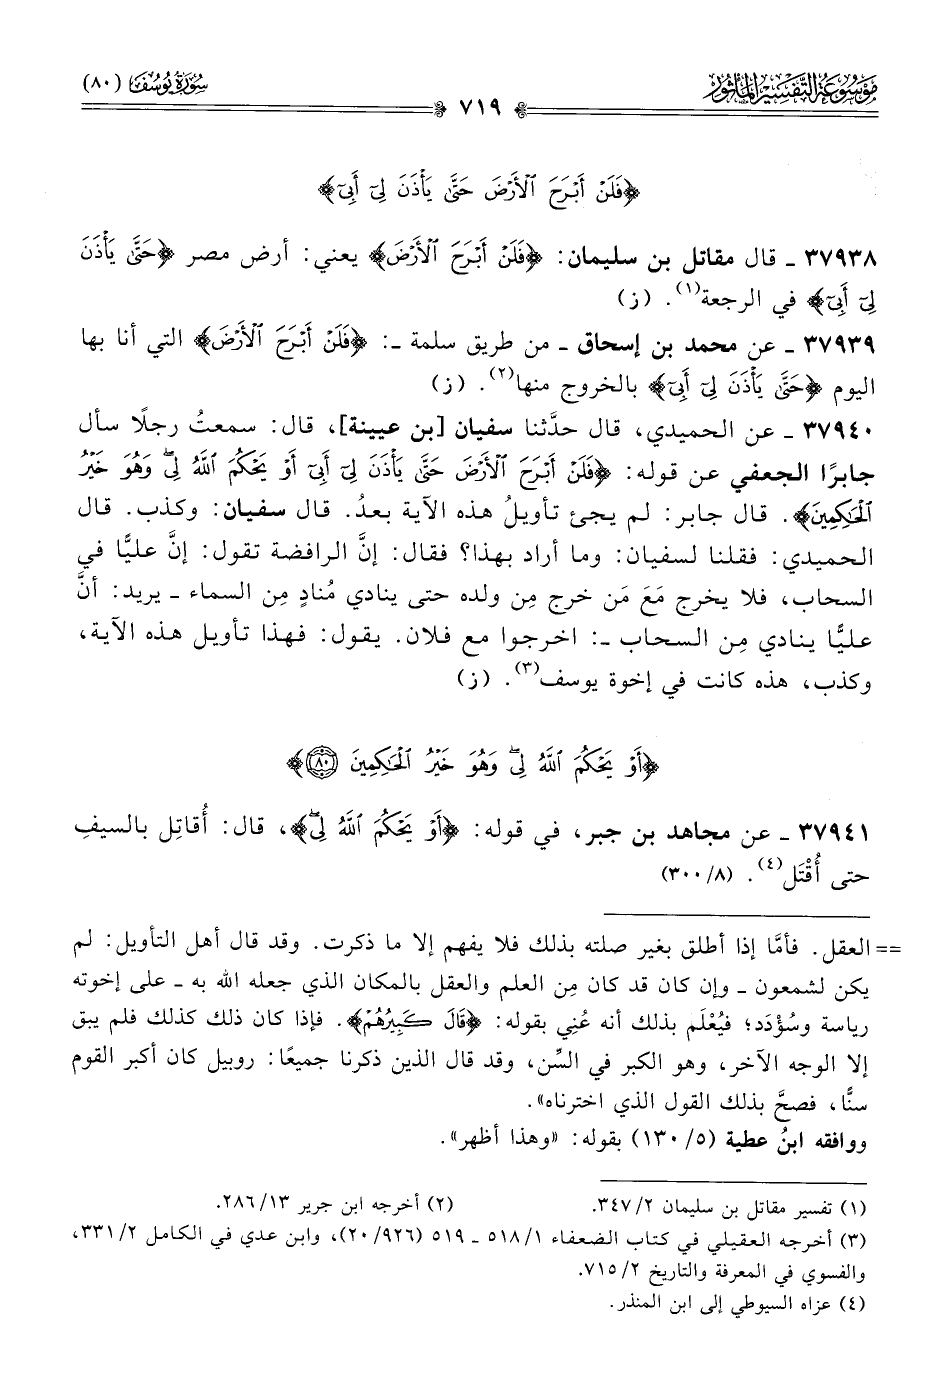 موسوعة التفسير المأثور
سورة يوسف (٨٠)
٧١٩
﴿فَلَنْ أَبْرَحَ ٱلْأَرْضَ حَتَّىٰ يَأْذَنَ لِىٓ أَبِىٓ﴾
٣٧٩٣٨ ـ قال مقاتل بن سليمان: ﴿فَلَنْ أَبْرَحَ ٱلْأَرْضَ﴾ يعني: أرض مصر ﴿حَتَّىٰ يَأْذَنَ
لِىٓ أَبِىٓ﴾ في الرجعة(١). (ز)
٣٧٩٣٩ ـ عن محمد بن إسحاق ـ من طريق سلمة ـ: ﴿فَلَنْ أَبْرَحَ ٱلْأَرْضَ﴾ التي أنا بها
اليوم ﴿حَتَّىٰ يَأْذَنَ لِىٓ أَبِىٓ﴾ بالخروج منها(٢). (ز)
٣٧٩٤٠ ـ عن الحميدي، قال حدَّثنا سفيان [بن عيينة]، قال: سمعتُ رجلًا سأل
جابرًا الجعفي عن قوله: ﴿فَلَنْ أَبْرَحَ ٱلْأَرْضَ حَتَّىٰ يَأْذَنَ لِىٓ أَبِىٓ أَوْ يَحْكُمَ ٱللَّهُ لِىۖ وَهُوَ خَيْرُ
ٱلْحَٰكِمِينَ﴾. قال جابر: لم يجئ تأويلُ هذه الآية بعدُ. قال سفيان: وكذب. قال
الحميدي: فقلنا لسفيان: وما أراد بهذا؟ فقال: إنَّ الرافضة تقول: إنَّ عليًّا في
السحاب، فلا يخرج مَعَ مَن خرج مِن ولده حتى ينادي مُنادٍ مِن السماء ـ يريد: أنَّ
عليًّا ينادي مِن السحاب ـ: اخرجوا مع فلان. يقول: فهذا تأويل هذه الآية،
وكذب، هذه كانت في إخوة يوسف(٣). (ز)
﴿أَوْ يَحْكُمَ ٱللَّهُ لِىۖ وَهُوَ خَيْرُ ٱلْحَٰكِمِينَ ٨٠﴾
٣٧٩٤١ ـ عن مجاهد بن جبر، في قوله: ﴿أَوْ يَحْكُمَ ٱللَّهُ لِىۖ﴾، قال: أُقاتِل بالسيفِ
حتى أُقْتَل(٤). (٣٠٠/٨)
== العقل. فأمَّا إذا أطلق بغير صلته بذلك فلا يفهم إلا ما ذكرت. وقد قال أهل التأويل: لم
يكن لشمعون ـ وإن كان قد كان مِن العلم والعقل بالمكان الذي جعله الله به ـ على إخوته
رياسة وسُؤْدَد؛ فيُعْلَم بذلك أنه عُنِي بقوله: ﴿قَالَ كَبِيرُهُمْ﴾. فإذا كان ذلك كذلك فلم يبق
إلا الوجه الآخر، وهو الكبر في السِّن، وقد قال الذين ذكرنا جميعًا: روبيل كان أكبر القوم
سنًّا، فصحَّ بذلك القول الذي اخترناه».
ووافقه ابنُ عطية (١٣٠/٥) بقوله: «وهذا أظهر».
(١) تفسير مقاتل بن سليمان ٣٤٧/٢.
(٢) أخرجه ابن جرير ٢٨٦/١٣.
(٣) أخرجه العقيلي في كتاب الضعفاء ٥١٨/١ ـ ٥١٩ (٢٠/٩٢٦)، وابن عدي في الكامل ٣٣١/٢،
والفسوي في المعرفة والتاريخ ٧١٥/٢.
(٤) عزاه السيوطي إلى ابن المنذر.